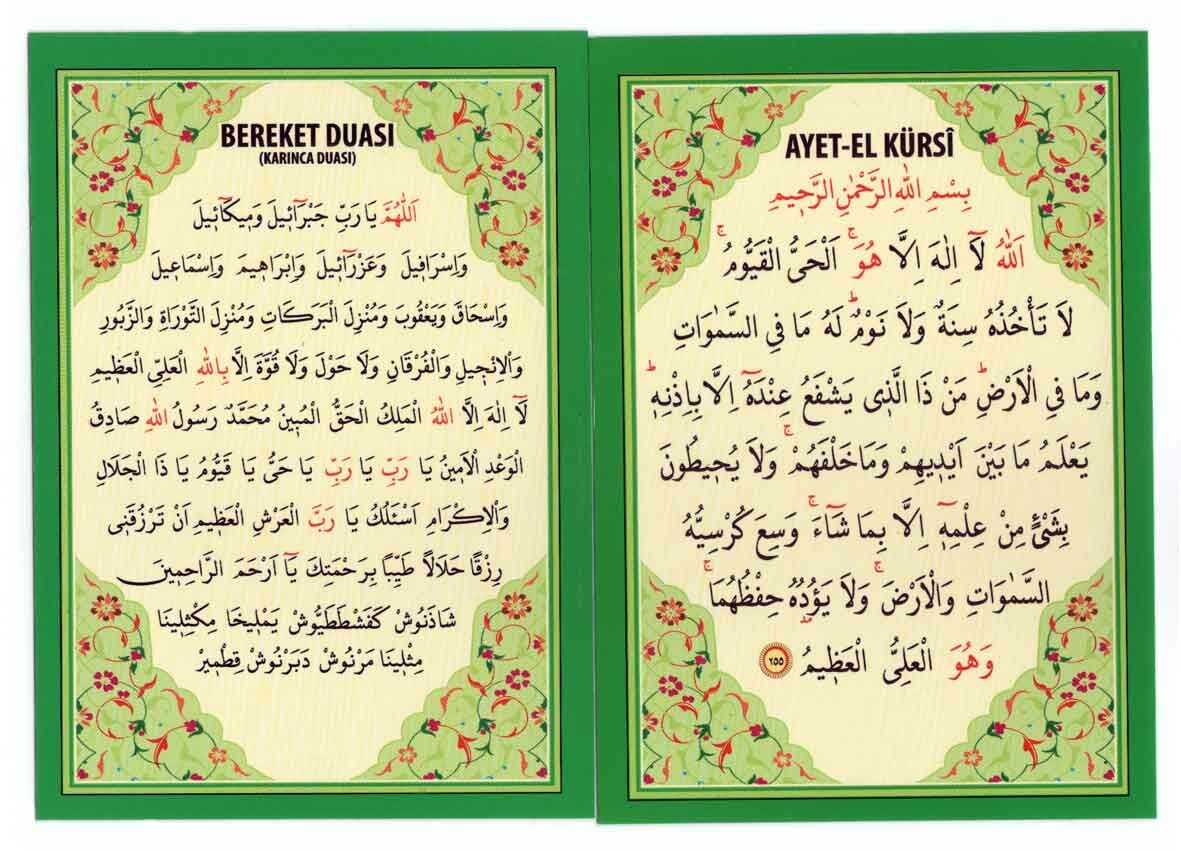 BEREKET DUASI
(KARINCA DUASI)
اَللّٰهُمَّ يَا رَبِّ جَبْرَآئِيلَ وَمِيكَآئِيلَ
وَاِسْرَافِيلَ وَعَزْرَآئِيلَ وَاِبْرَاهِيمَ وَاِسْمَاعِيلَ
وَاِسْحَاقَ وَيَعْقُوبَ وَمُنْزِلَ الْبَرَكَاتِ وَمُنْزِلَ التَّوْرَاةِ وَالزَّبُورِ
وَاْلاِنْجِيلِ وَالْفُرْقَانِ وَلَا حَوْلَ وَلَا قُوَّةَ اِلَّا بِاللّٰهِ الْعَلِىِّ الْعَظِيمِ
لَآ اِلٰهَ اِلَّا اللّٰهُ الْمَلِكُ الْحَقُّ الْمُبِينُ مُحَمَّدٌ رَسُولُ اللّٰهِ صَادِقُ
الْوَعْدِ الْاَمِينُ يَا رَبِّ يَا رَبِّ يَا حَىُّ يَا قَيُّومُ يَا ذَا الْجَلَالِ
وَاْلاِكْرَامِ اَسْئَلُكَ يَا رَبَّ الْعَرْشِ الْعَظِيمِ اَنْ تَرْزُقَنِى
رِزْقًا حَلَالًا طَيِّبًا بِرَحْمَتِكَ يَآ اَرْحَمَ الرَّاحِمِينَ
شَاذَنُوشْ كَفَشْطَطَيُّوشْ يَمْلِيخَا مِكْثِلِينَا
مِثْلِينَا مَرْنُوشْ دَبَرْنُوشْ قِطْمِيرْ
AYET-EL KÜRSÎ
بِسْمِ اللّٰهِ الرَّحْمٰنِ الرَّحِيمِ
اَللّٰهُ لَآ اِلٰهَ اِلَّا هُوَۚ اَلْحَىُّ الْقَيُّومُۚ
لَا تَأْخُذُهُ سِنَةٌ وَلَا نَوْمٌۜ لَهُ مَا فِى السَّمٰوَاتِ
وَمَا فِى الْاَرْضِۜ مَنْ ذَا الَّذِى يَشْفَعُ عِنْدَهُٓ اِلَّا بِاِذْنِهِۜ
يَعْلَمُ مَا بَيْنَ اَيْدِيهِمْ وَمَا خَلْفَهُمْۚ وَلَا يُحِيطُونَ
بِشَىْءٍ مِنْ عِلْمِهِٓ اِلَّا بِمَا شَآءَۚ وَسِعَ كُرْسِيُّهُ
السَّمٰوَاتِ وَالْاَرْضَۚ وَلَا يَؤُدُهُ حِفْظُهُمَاۚ
وَهُوَ الْعَلِىُّ الْعَظِيمُ ٢٥٥